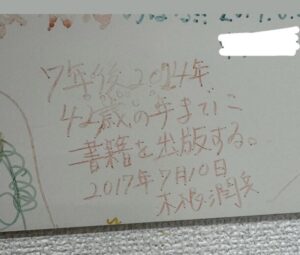 7年後2024年
42歳の年までに
書籍を出版する。
2017年7月10日